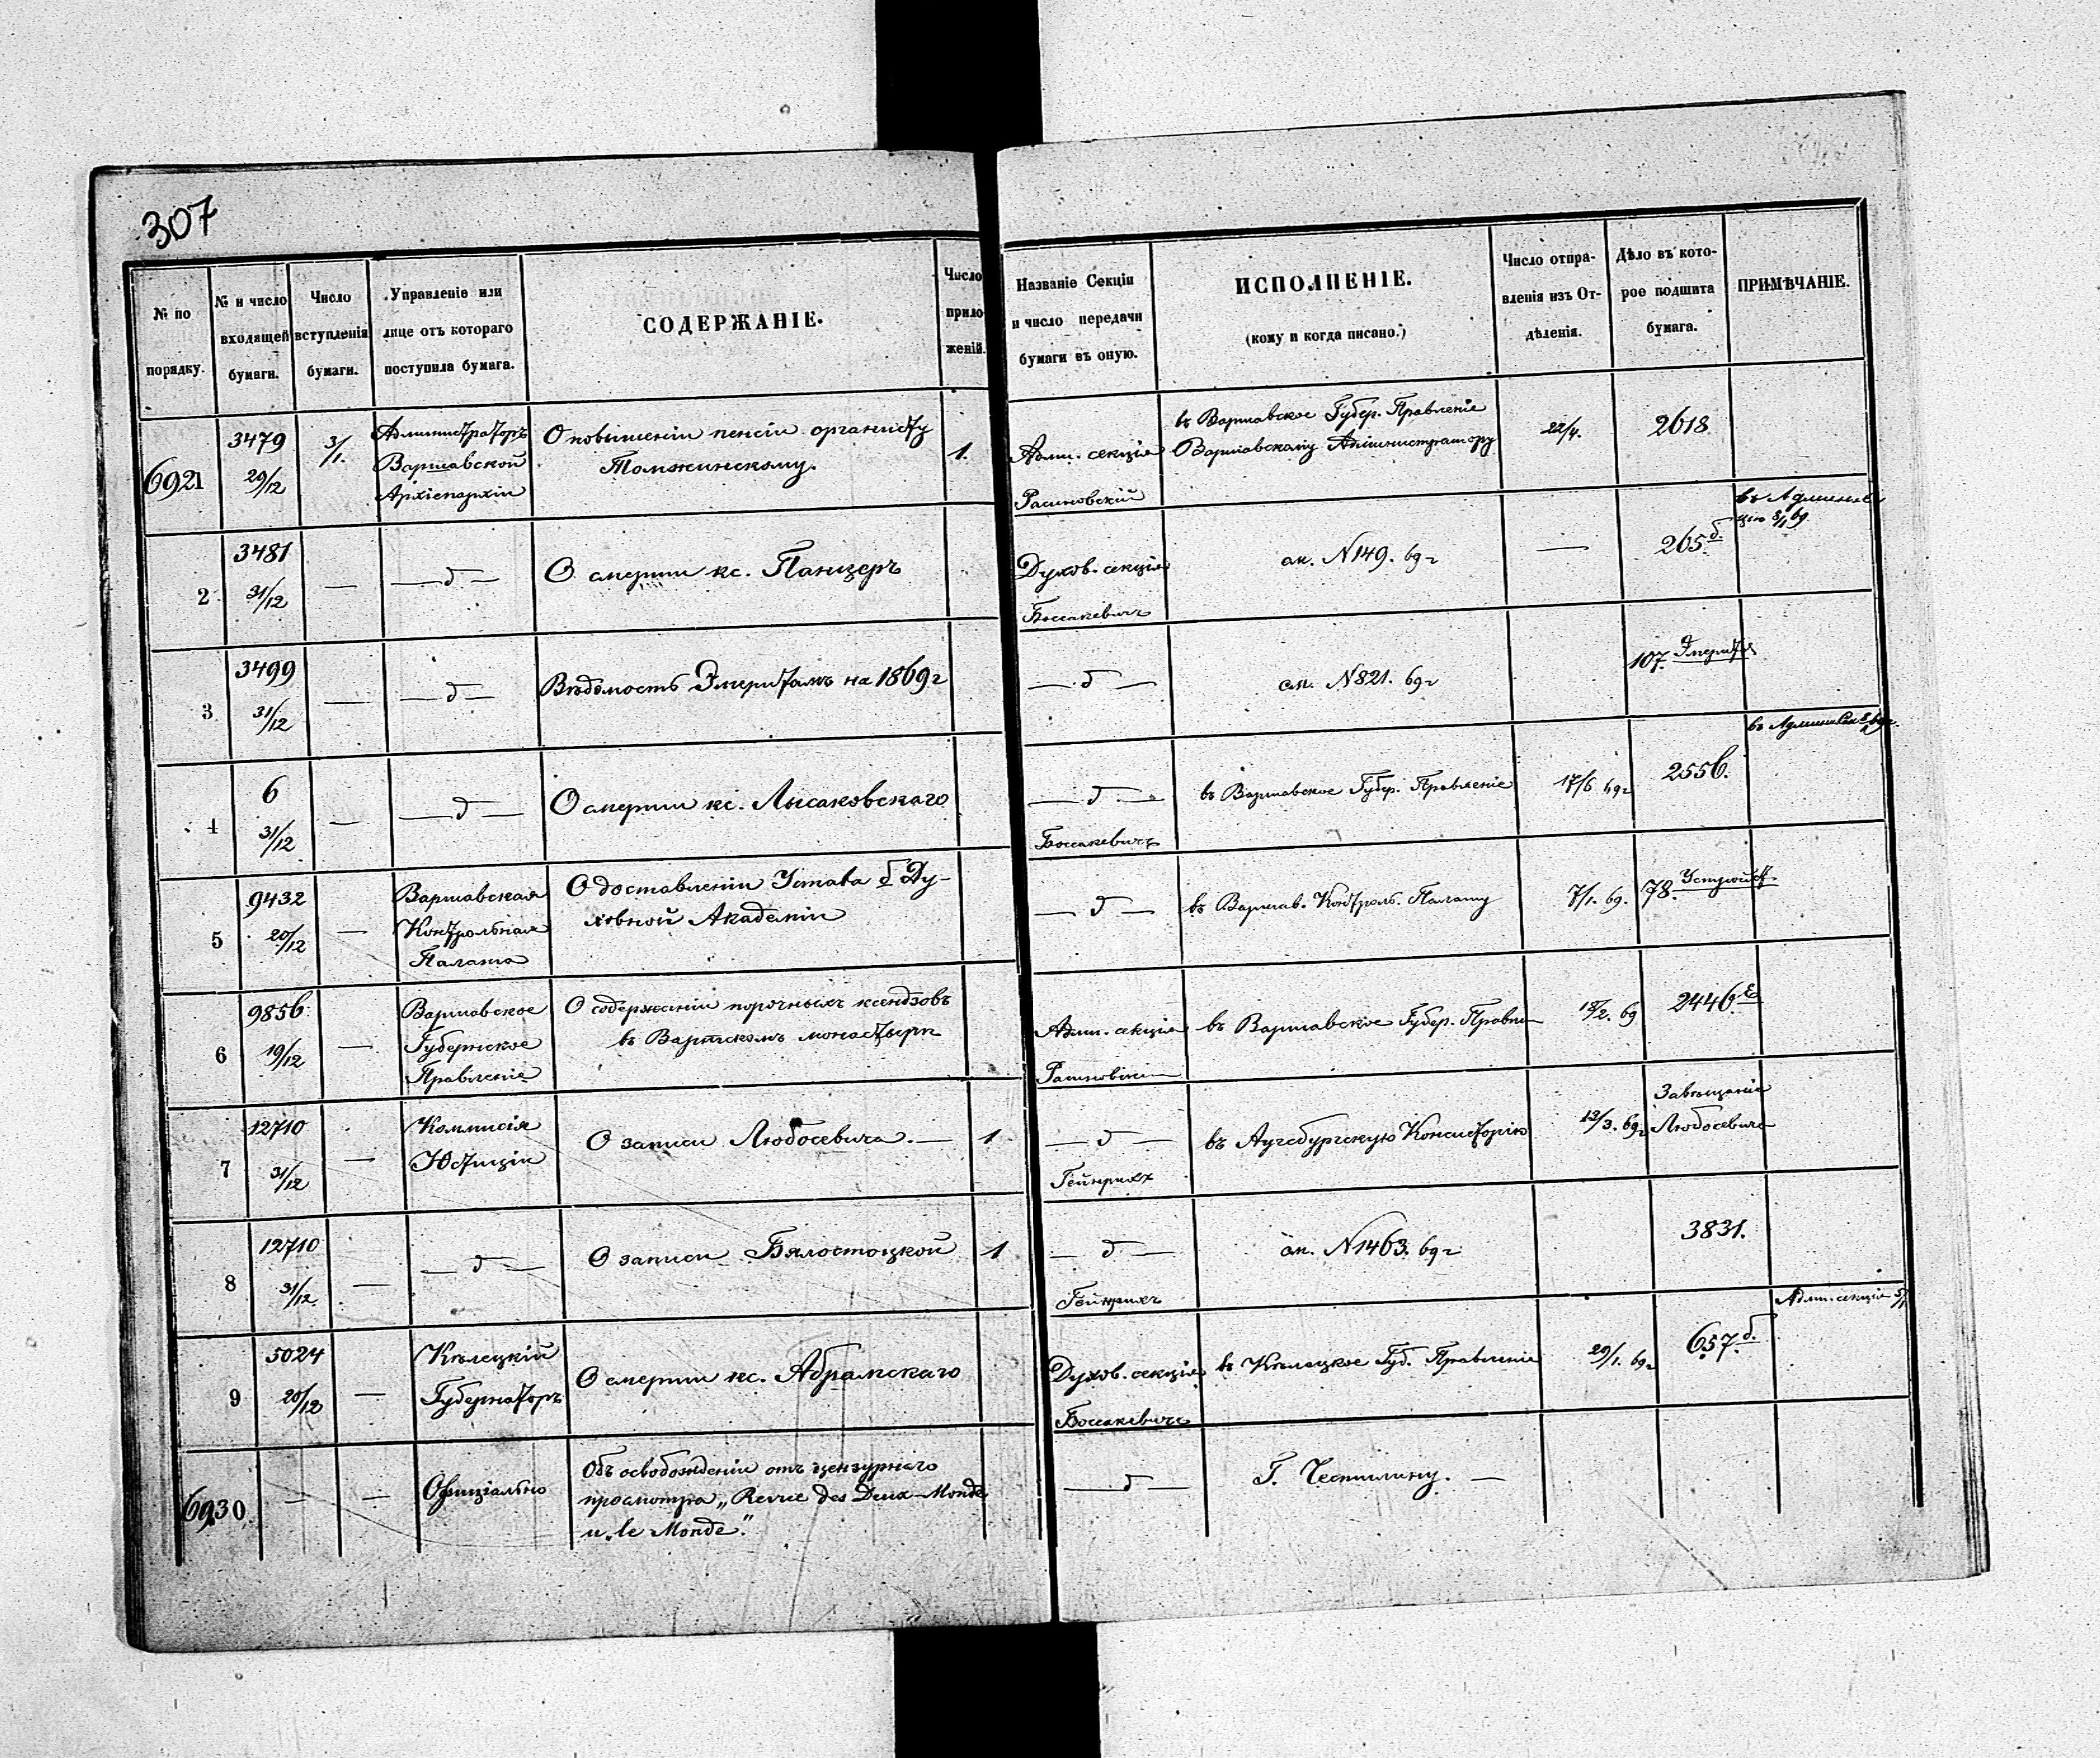 307
№ по порядку.
№ и число входящей бумаги.
Число вступленія бумаги.
Управленіе или лице отъ котораго поступила бумага.
СОДЕРЖАНІЕ.
Число приложеній.
Названіе Секціи и число передачи бумаги въ оную.
ИСПОЛНЕНІЕ.
(кому и когда писано.)
Число отправленія изъ Отдѣленія.
Дѣло въ которое подшита бумага.
ПРИМѢЧАНІЕ.
6921
3479
29/12
3/1.
Администраторъ
Варшавской
Архіепархіи
О повышеніи пенсіи органисту
Томжинскому.
1.
Адми. секція
въ Варшавское Губер. Правленіе
Варшавскому Администратору
22/4.
2618
2
3481
31/12
— — д —
О смерти кс. Панцеръ
Духов. секція
Боссакевичъ
см. N149. 69 г
—
265 б.
3
3499
31/12
— — д —
Вѣдомость Эмеритамъ на 1869 г
— д —
см. N821. 69 г
107. Эмерит.
4
6
31/12
— — д —
О смерти кс. Лысаковскаго
— д —
Боссакевичъ
въ Варшавское Губер. Правленіе
17/6 69 г
255б.
5
9432
20/12
—
Варшавская
Контрольная
Палата
О доставленіи Устава б Ду-
ховной Академіи
— д —
въ Варшав. Контроль. Палату
7/1. 69.
78.
6
9856
19/12
—
Варшавское
Губернское
Правленіе
О содержаніи порочныхъ ксендзовъ
въ Вартскомъ монастырѣ
Адми. секція
въ Варшавское Губер. Правле
18/2. 69
2446
7
12710
31/12
—
Коммисія
Юстиціи
О записи Любосевича. —
1
— д —
Гейнрихъ
въ Аугсбургскую Консисторію
13/3. 69 г
Завѣщаніе
Любосевича
8
12710
31/12.
— — д —
О записи Бялостоцкой
1
— д —
Гейнрихъ
см. N1463. 69 г
3831.
9
5024
20/12
—
Кѣлецкій
Губернаторъ
О смерти кс. Абрамскаго
Духов. секція
Боссакевичъ
въ Кѣлецкое Губ. Правленіе
29/1. 69 г
657 б.
Адми. секція 5/1
6930
— —
Офиціально
Объ освобожденіи отъ цензурнаго
просмотра „Revue des Deux-Monde
и „le Monde."
— д —